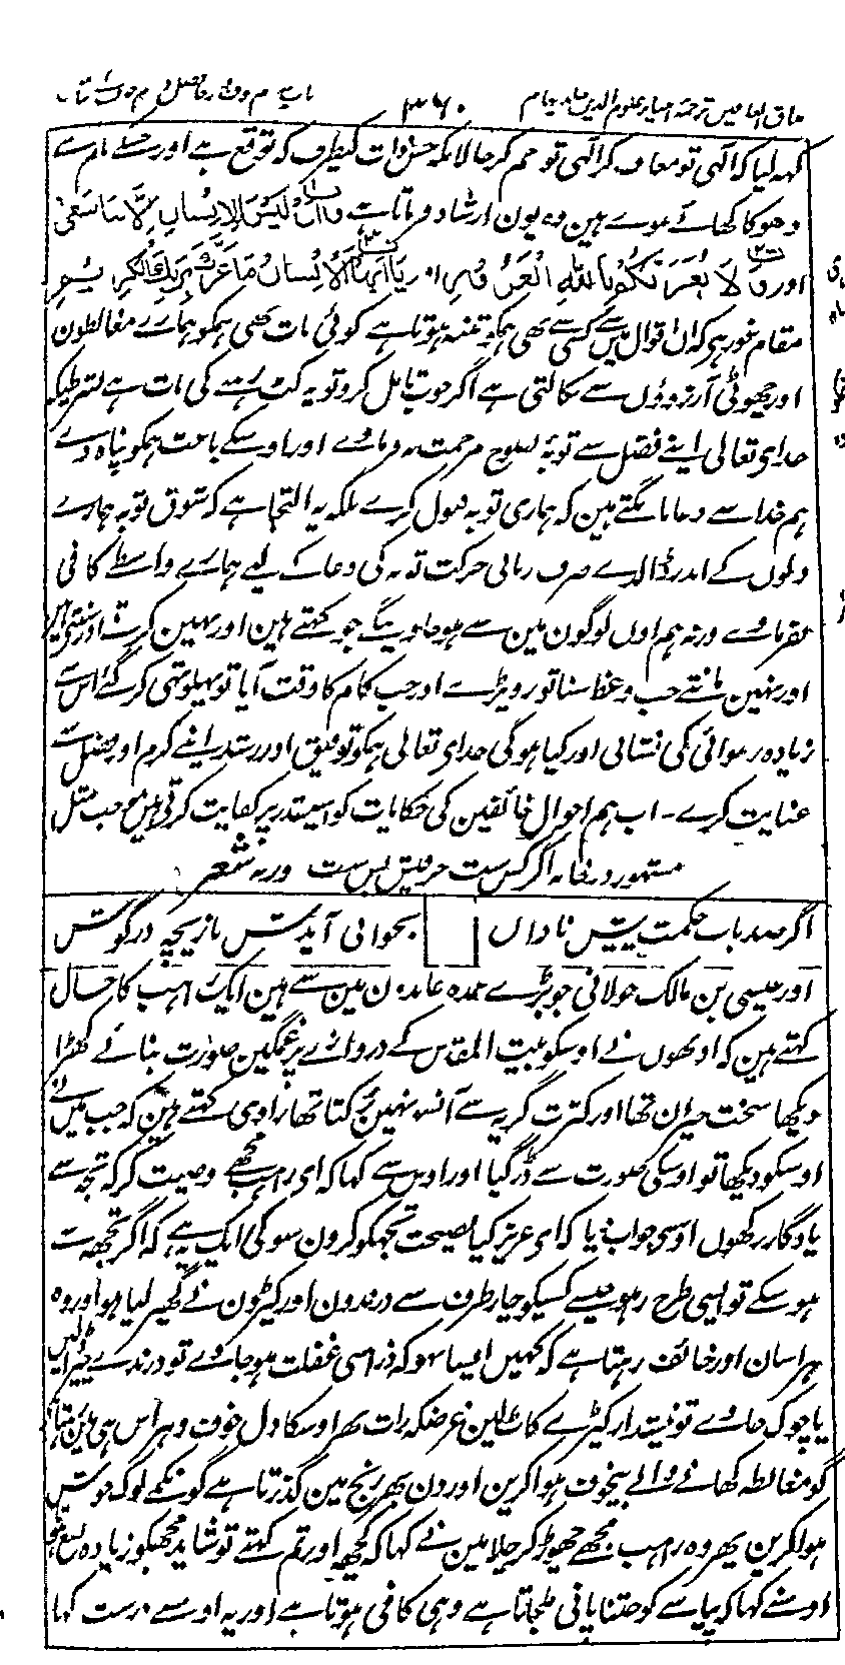 مذاق العارفین ترجمہ احیاء علوم الدین جلد چہارم ۳۶۰ باب
کہہ لیا کہ الٰہی تو معاف کر الٰہی تو رحم کر حالانکہ جس ذات کیطرف کہ توقع ہے اور جسکے نام سے
دھوکا کھائے ہوے ہین وہ یون ارشاد فرماتا ہے وان لیس للانسان الا ما سعی
اور ولا یغرنکم باللہ الغرور اور یا ایہا الانسان ما غرک بربک الکریم پھر
مقام غور ہی کہ ان اقوال مین سے کسی سے بھی ہمکو تنبہ ہوتا ہے کوئی بات بھی ہمکو ہمارے مغالطون
اور جھوٹی آرزوؤں سے نکالتی ہے اگر خوب تامل کرو تو یہ کٹ رہنے کی بات ہے بشرطیکہ
خدای تعالی اپنے فضل سے توبہ نصوح مرحمت نہ فرماوے اور اوسکے باعث ہمکو پناہ نہ دے
ہم خدا سے دعا مانگتے ہین کہ ہماری توبہ قبول کرے بلکہ یہ التجا ہے کہ شوق توبہ ہمارے
دلوں کے اندر ڈالدے صرف زبانی حرکت توبہ کی دعا کے لیے ہمارے واسطے کافی
نفرماوے ورنہ ہم اون لوگون مین سے ہو جاوینگے جو کہتے ہین اور نہین کرتے اور سنتے ہین
اور نہین مانتے جب وعظ سنا تو رو پڑے اور جب کام کا وقت آیا تو پہلو تہی کر گئے اس سے
زیادہ رسوائی کی نشانی اور کیا ہوگی خدای تعالی ہمکو توفیق اور رشد اپنے کرم اور فضل سے
عنایت کرے۔ اب ہم احوال خائفین کی حکایات کو اسیقدر پر کفایت کرتے ہین موجب مثل
مشہور در خانہ اگر کس ست حرفیش بس ست ورنہ شعر
اگر صد باب حکمت پیش ناداں بخوانی آیدش بازیچہ در گوش
اور عیسی بن مالک خولانی جو بڑے عمدہ عابدون مین سے ہین ایک راہب کا حال
کہتے ہین کہ اونھوں نے اوسکو بیت المقدس کے دروازے پر غمگین صورت بنائے کھڑا
دیکھا سخت حیران تھا اور کثرت گریہ سے آنسو نہین رکتا تھا راوی کہتے ہین کہ جب مین نے
اوسکو دیکھا تو اوسکی صورت سے ڈر گیا اور اوس سے کہا کہ ای راہب مجھے وصیت کر کہ تجھ سے
یادگار رکھوں اوسنے جواب دیا کہ ای عزیز کیا نصیحت تجھکو کرون سو کی ایک یہ ہے کہ اگر تجھ سے
ہو سکے تو اسی طرح رہ جیسے کسیکو چار طرف سے درندون اور کیڑون نے گھیر لیا ہو اور وہ
ہراسان اور خائف رہتا ہے کہ کہیں ایسا نہو کہ ذرا سی غفلت ہو جاوے تو درندے چیر ڈالیں
یا چوک جاوے تو نیشدار کیڑے کاٹ لین غرضکہ رات بھر اوسکا دل خوف و ہراس ہی مین رہتا ہے
گو مغالطہ کھانے والے بیخوف ہوا کرین اور دن بھر رنج مین گذرتا ہے گو نکمے لوگ خوش
ہوا کرین پھر وہ راہب مجھے چھوڑ کر چلا مین نے کہا کہ کچھ اور تم کہتے تو شاید مجھکو زیادہ نفع ہوتا
اوسنے کہا کہ پیاسے کو جتنا پانی ملجاتا ہے وہی کافی ہوتا ہے اور یہ اوسنے درست کہا